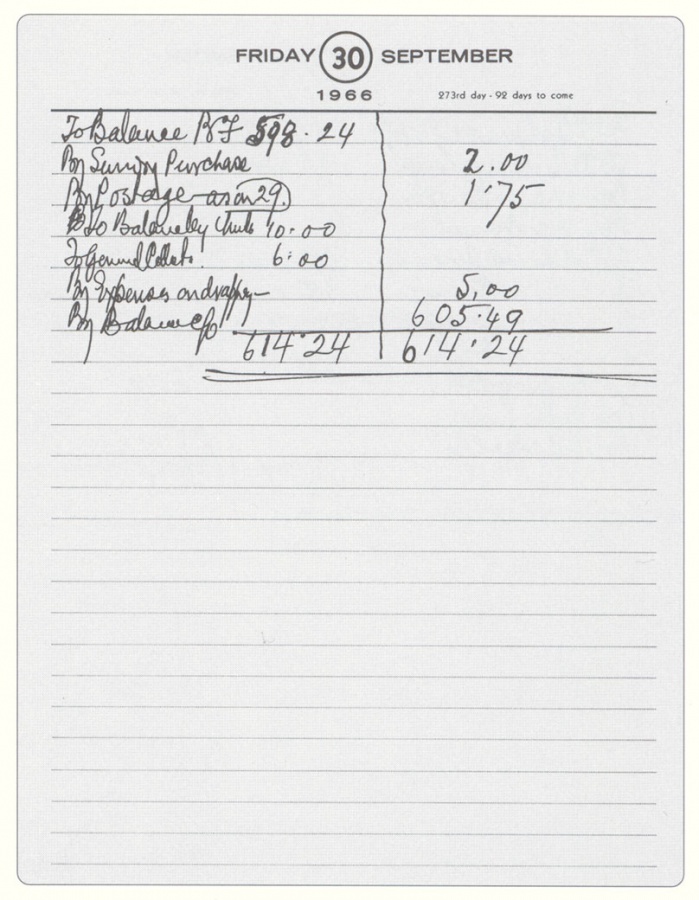 FRIDAY 30 SEPTEMBER
1966 273rd day - 92 days to come
To Balance B F 598.24
By Sundry Purchase 2.00
By Postage as on 29. 1.75
To Balance by 10.00
To 6.00
By Expenses on 5.00
By Balance c/o 605.49
614.24 614.24